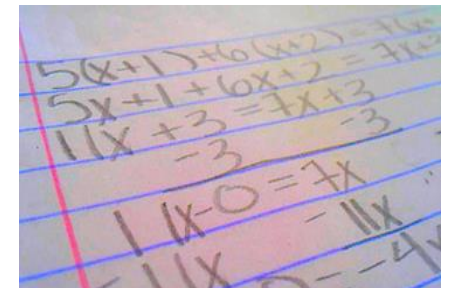 5(x+1)+6(x+2)=7(x+
5x+1+6x+2=7x+3
11x+3=7x+3
-3 -3
11x-0=7x
-11x -11x
--4x